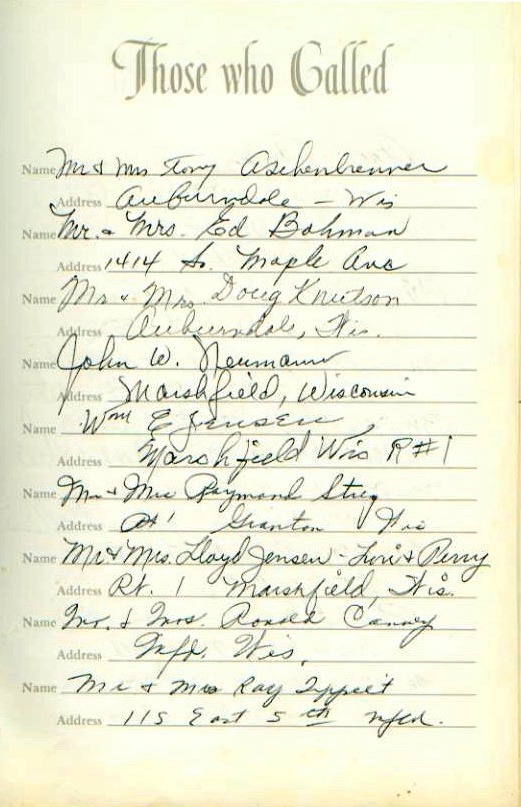 Those who Called
Name Mr & Mrs Tony Aschenbrenner
Address Auburndale - Wis
Name Mr. & Mrs. Ed Bohman
Address 1414 So. Maple Ave
Name Mr & Mrs. Doug Knutson
Address Auburndale, Wis.
Name John W. Neumann
Address Marshfield, Wisconsin
Name Wm E Jensen
Address Marshfield Wis R#1
Name Mr & Mrs Raymond
Address Rt 1 Granton Wis
Name Mr & Mrs. Lloyd Jensen - Lori & Perry
Address Rt. 1 Marshfield, Wis.
Name Mr. & Mrs. Ronald
Address Mfd. Wis.
Name Mr & Mrs Ray
Address 115 East 5th Mfld.